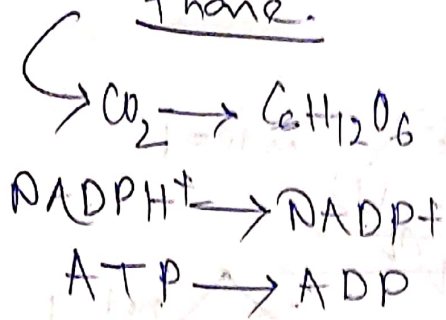 CO₂ → C₆H₁₂O₆
NADPH⁺ → NADP+
ATP → ADP